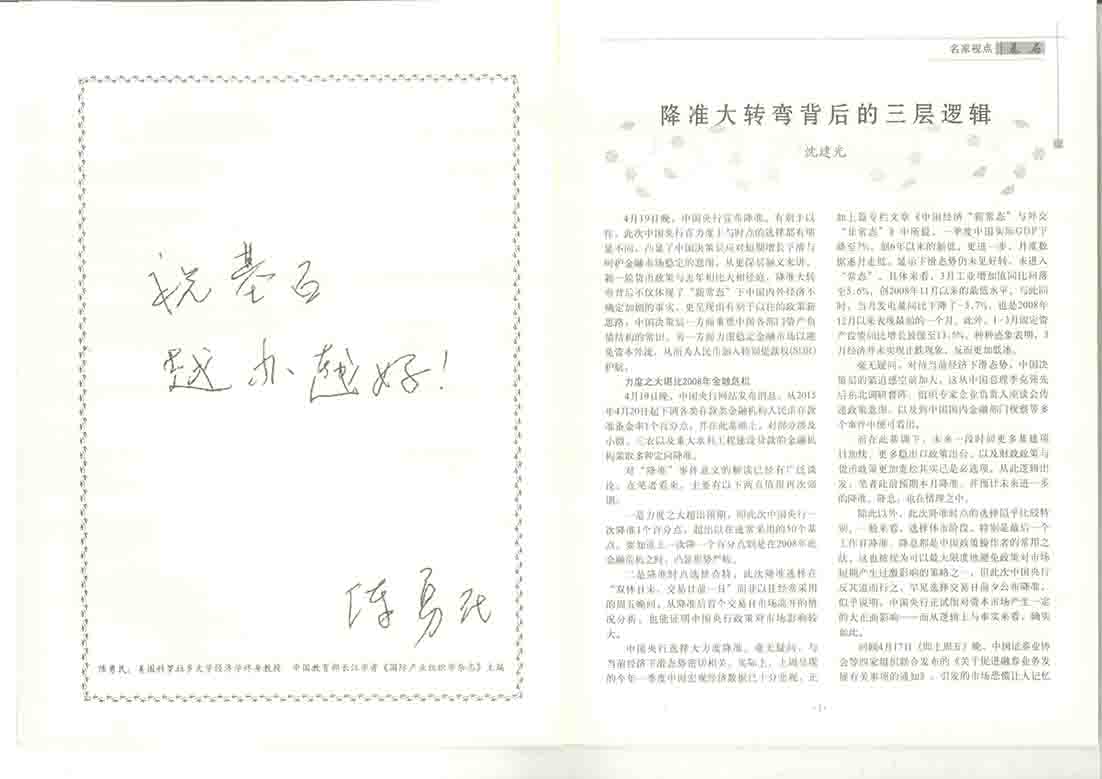 祝基石
越办越好！
陈勇民
陈勇民：美国科罗拉多大学经济学终身教授 中国教育部长江学者《国际产业组织学杂志》主编
名家视点 基石
降准大转弯背后的三层逻辑
沈建光
4月19日晚，中国央行宣布降准。有别于以
往，此次中国央行在力度上与时点的选择都有明
显不同，凸显了中国决策层应对短期增长下滑与
呵护金融市场稳定的意图。从更深层涵义来讲，
新一轮货币政策与去年相比大相径庭，降准大转
弯背后不仅体现了“新常态”下中国内外经济不
确定加剧的事实，更呈现出有别于以往的政策新
思路，中国决策层一方面重塑中国各部门资产负
债结构的常识，另一方面力图稳定金融市场以避
免资本外流，从而为人民币加入特别提款权(SDR)
护航。
力度之大堪比2008年金融危机
4月19日晚，中国央行网站发布消息，从2015
年4月20日起下调各类存款类金融机构人民币存款
准备金率1个百分点，并在此基础上，对部分涉及
小微、三农以及重大水利工程建设贷款的金融机
构采取多种定向降准。
对“降准”事件意义的解读已经有广泛谈
论，在笔者看来，主要有以下两点值得再次强
调：
一是力度之大超出预期，即此次中国央行一
次降准1个百分点，超出以往通常采用的50个基
点。要知道上一次降一个百分点则是在2008年底
金融危机之时，凸显形势严峻。
二是降准时点选择奇特，此次降准选择在
“双休日末、交易日前一日”而非以往经常采用
的周五晚间，从降准后首个交易日市场高开的情
况分析，也能证明中国央行政策对市场影响较
大。
中国央行选择大力度降准，毫无疑问，与
当前经济下滑态势密切相关。实际上，上周呈现
的今年一季度中国宏观经济数据已十分悲观，正
如上篇专栏文章《中国经济“新常态”与外交
“非常态”》中所籁，一季度中国实际GDP下
降至7%，创6年以来的新低。更进一步，月度数
据逐月走低，显示下滑态势仍未见好转，未进入
“常态”。具体来看，3月工业增加值同比回落
至5.6%，创2008年11月以来的最低水平，与此同
时，当月发电量同比下降了-3.7%，也是2008年
12月以来表现最弱的一个月。此外，1-3月固定资
产投资同比增长放缓至13.5%。种种迹象表明，3
月经济并未实现止跌现象，反而更加低迷。
毫无疑问，对待当前经济下滑态势，中国决
策层的紧迫感空前加大，这从中国总理李克强先
后东北调研督阵、组织专家企业负责人座谈会传
递政策意图，以及到中国国内金融部门视察等多
个事件中便可看出。
而在此基调下，未来一段时间更多基建项
目加快、更多稳市政策出台、以及财政政策与
货币政策更加宽松其实已是必选项。从此逻辑出
发，笔者此前预期本月降准，并预计未来进一步
的降准、降息，也在情理之中。
除此以外，此次降准时点的选择似乎比较特
别。一般来看，选择休市阶段，特别是最后一个
工作日降准、降息都是中国政策操作者的常用之
法，这也被视为可以最大限度地避免政策对市场
短期产生过激影响的策略之一，但此次中国央行
反其道而行之，罕见选择交易日前夕公布降准，
似乎说明，中国央行正试图对资本市场产生一定
的大正面影响——而从逻辑上与事实来看，确实
如此。
回顾4月17日（即上周五）晚，中国证券业协
会等四家组织联合发布的《关于促进融券业务发
展有关事项的通知》，引发的市场恐慌让人记忆
·1·